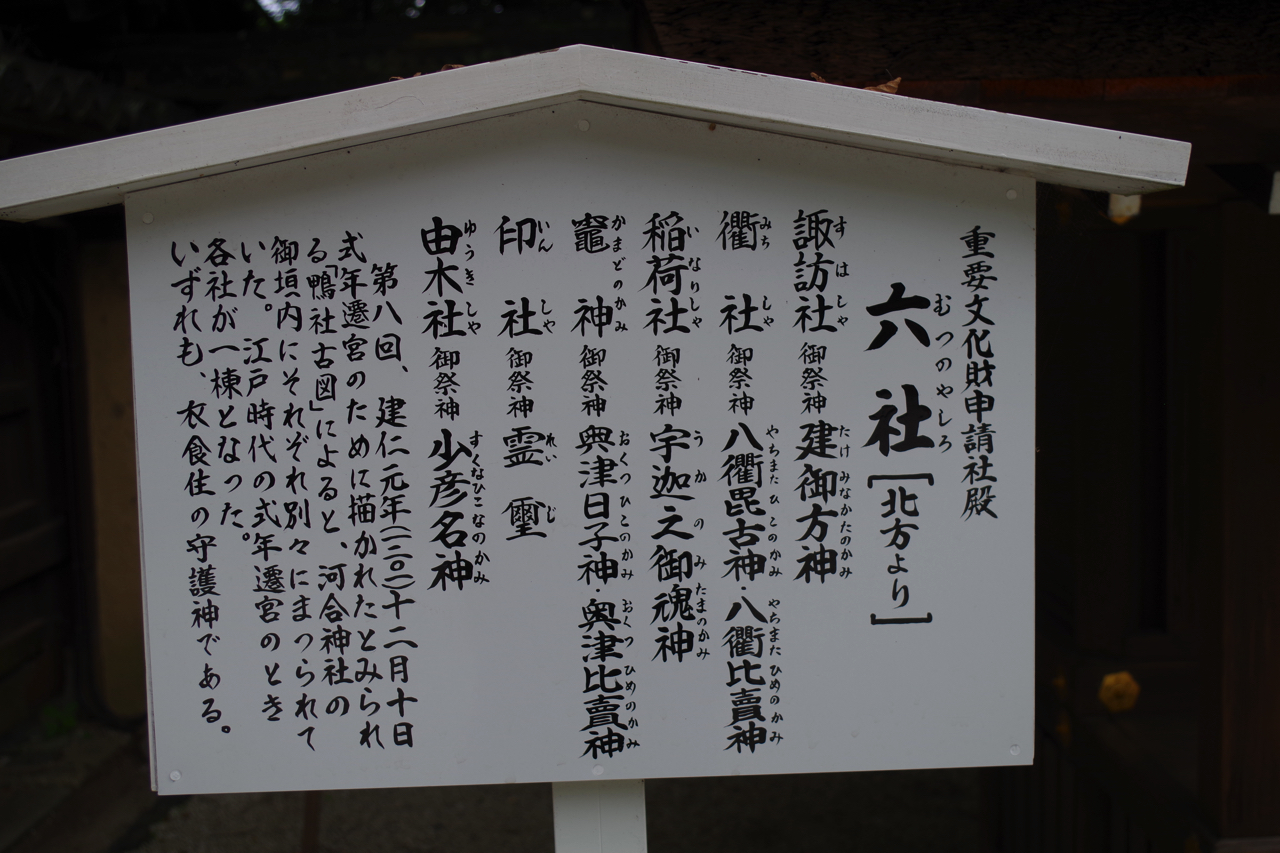 重要文化財申請社殿
六社［北方より］
むつのやしろ
諏訪社 御祭神 建御方神
すはしや たけみなかたのかみ
衢社 御祭神 八衢毘古神・八衢比賣神
みちしや やちまたひこのかみ やちまたひめのかみ
稲荷社 御祭神 宇迦之御魂神
いなりしや うかのみたまのかみ
竈神 御祭神 奥津日子神・奥津比賣神
かまどのかみ おくつひこのかみ おくつひめのかみ
印社 御祭神 霊璽
いんしや れいじ
由木社 御祭神 少彦名神
ゆうきしや すくなひこなのかみ
第八回、建仁元年(一二〇一)十二月十日
式年遷宮のために描かれたとみられ
る「鴨社古図」によると、河合神社の
御垣内にそれぞれ別々にまつられて
いた。江戸時代の式年遷宮のとき
各社が一棟となった。
いずれも、衣食住の守護神である。